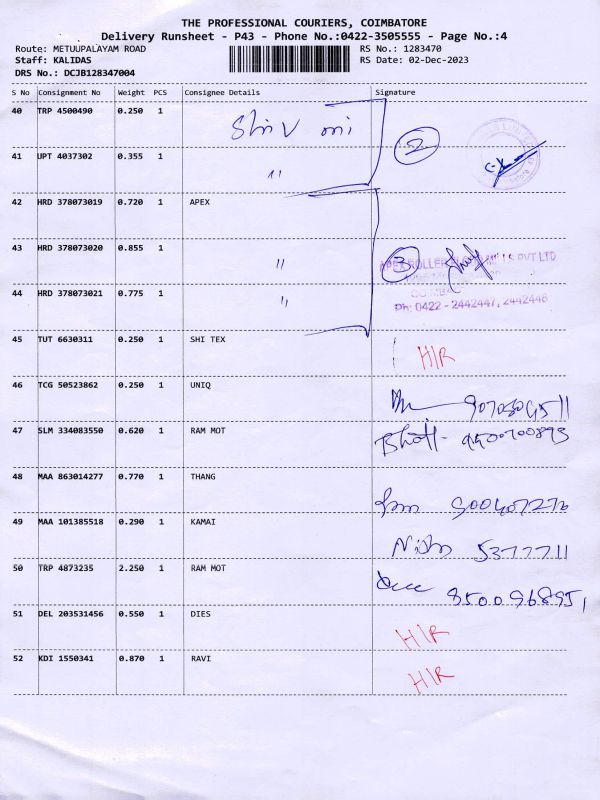 THE PROFESSIONAL COURIERS, COIMBATORE
Delivery Runsheet - P43 - Phone No.:0422-3505555 - Page No.:4
Route: METUUPALAYAM ROAD RS No.: 1283470
Staff: KALIDAS RS Date: 02-Dec-2023
DRS No.: DCJB128347004
S No Consignment No Weight PCS Consignee Details Signature
40 TRP 4500490 0.250 1
2
41 UPT 4037302 0.355 1 "
42 HRD 378073019 0.720 1 APEX
43 HRD 378073020 0.855 1 " 3
APEX ROLLER MILLS PVT LTD
44 HRD 378073021 0.775 1 "
Ph: 0422 - 2442447, 2442448
45 TUT 6630311 0.250 1 SHI TEX H/R
46 TCG 50523862 0.250 1 UNIQ
47 SLM 334083550 0.620 1 RAM MOT
48 MAA 863014277 0.770 1 THANG
49 MAA 101385518 0.290 1 KAMAI 5377711
50 TRP 4873235 2.250 1 RAM MOT 8500968951
51 DEL 203531456 0.550 1 DIES H/R
52 KDI 1550341 0.870 1 RAVI H/R